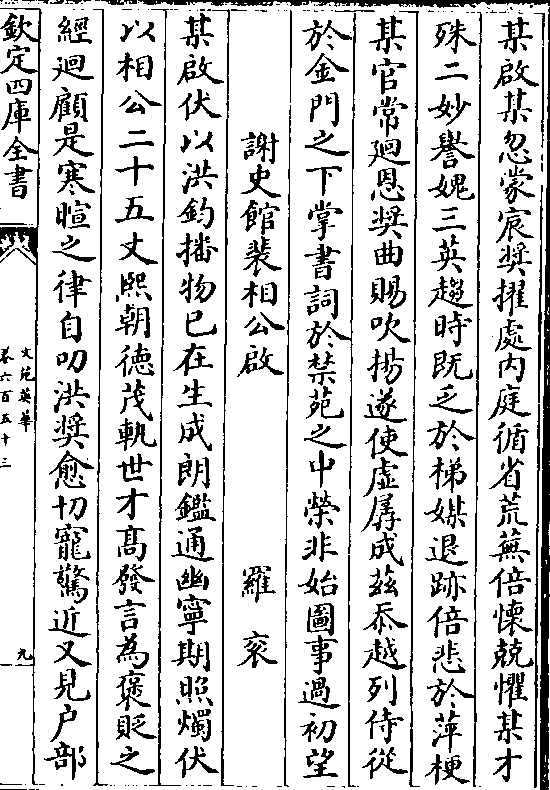 某啟某忽蒙宸奬擢處内庭循省荒蕪倍懐兢懼某才
殊二妙譽媿三英趨時既乏於梯媒退跡倍悲於萍梗
某官常廻恩奬曲賜吹揚遂使虚孱成兹忝越列侍從
於金門之下掌書詞於禁苑之中榮非始圖事過初望
謝史館裴相公啟 羅衮
某啟伏以洪鈞播物已在生成朗鑑通幽寧期照燭伏
以相公二十五丈熙朝徳茂軌世才髙發言為褒貶之
經廻顧是寒暄之律自叨洪奬愈切寵驚近又見户部
欽定四庫全書
文苑英華
卷六百五十三
九